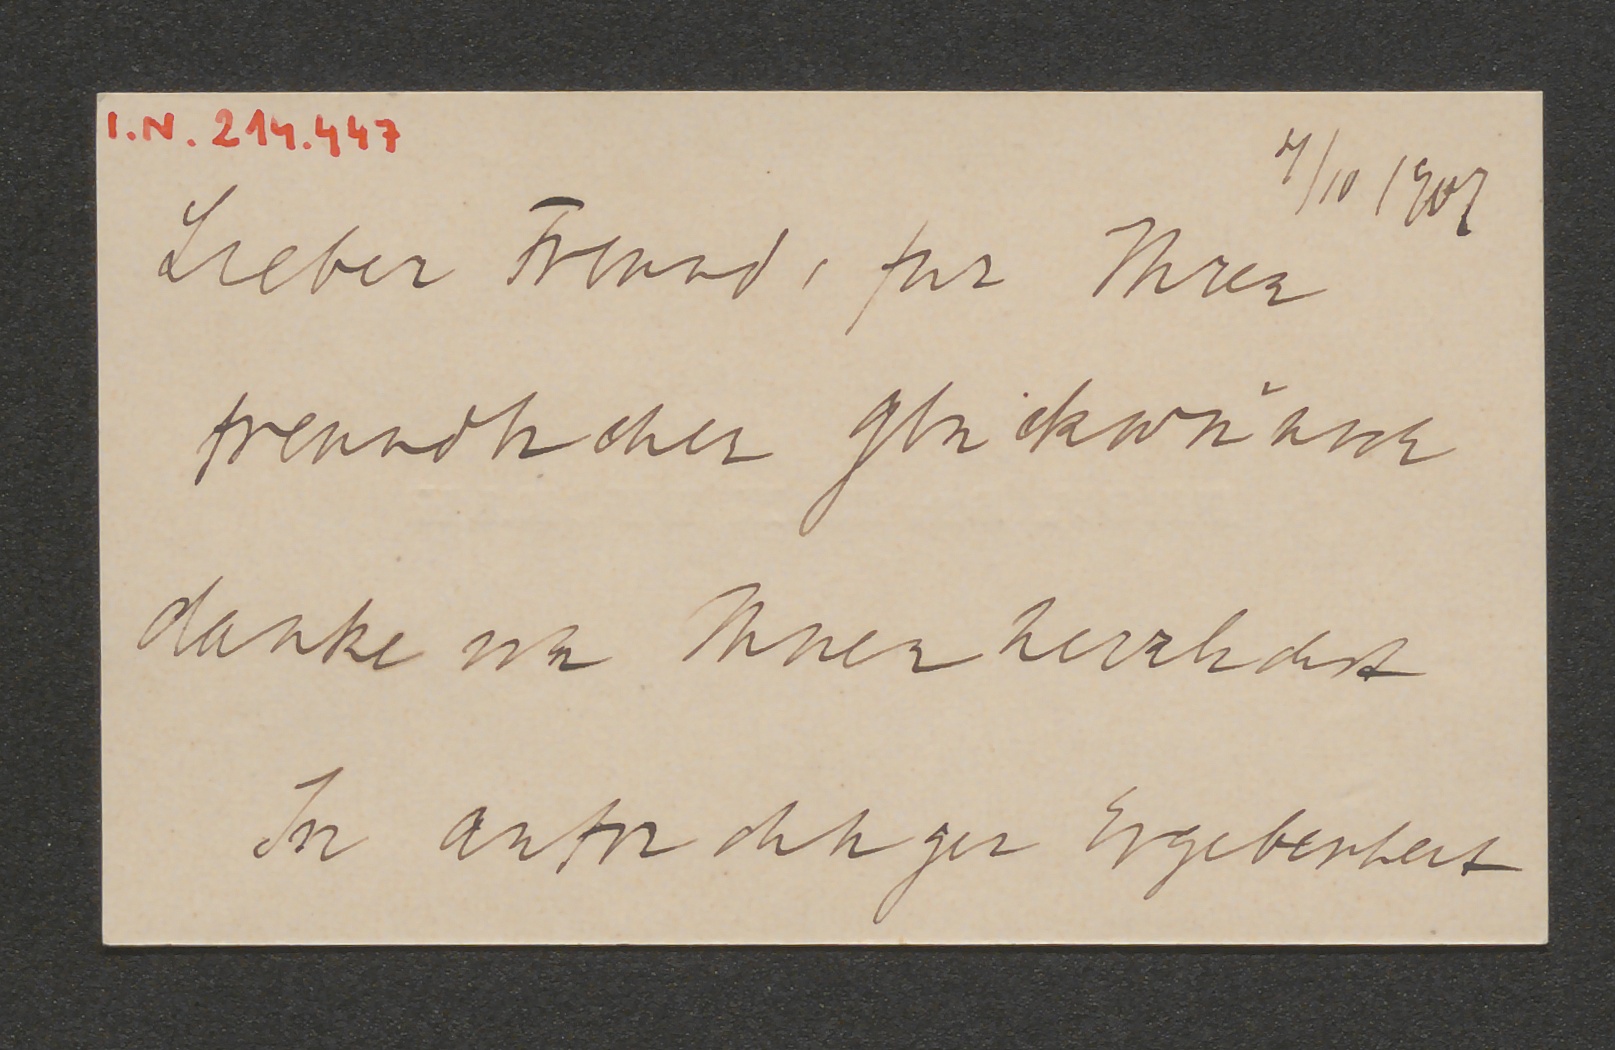 I.N. 214.447
4/10 1907
Lieber Freund, für Ihren
freundlichen Glückwunsch
danke ich Ihnen herzlichst
In aufrichtiger Ergebenheit